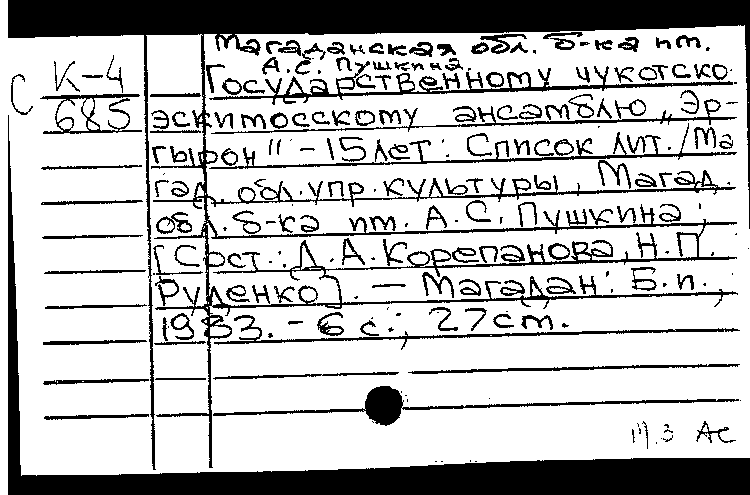 Магаданская обл. б-ка им.
А.С. Пушкина.
С К-4 Государственному чукотско
685 эскимосскому ансамблю „Эр-
гырон" - 15 лет: Список лит./Ма
гад. обл. упр. культуры, Магад.
обл. б-ка им. А.С. Пушкина;
[Сост.: Л.А. Корепанова, Н.П.
Руденко]. — Магадан: Б.и.,
1983. - 6 с.; 27 см.
АС